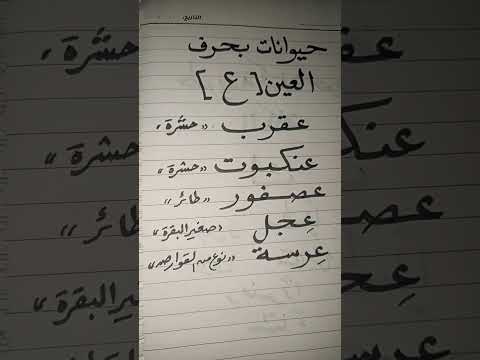 التاريخ:
حيوانات بحرف
العين [ع]
عقرب "حشرة"
عنكبوت "حشرة"
عصفور "طائر"
عِجل "صغير البقرة"
عِرسة "نوع من القوارض"